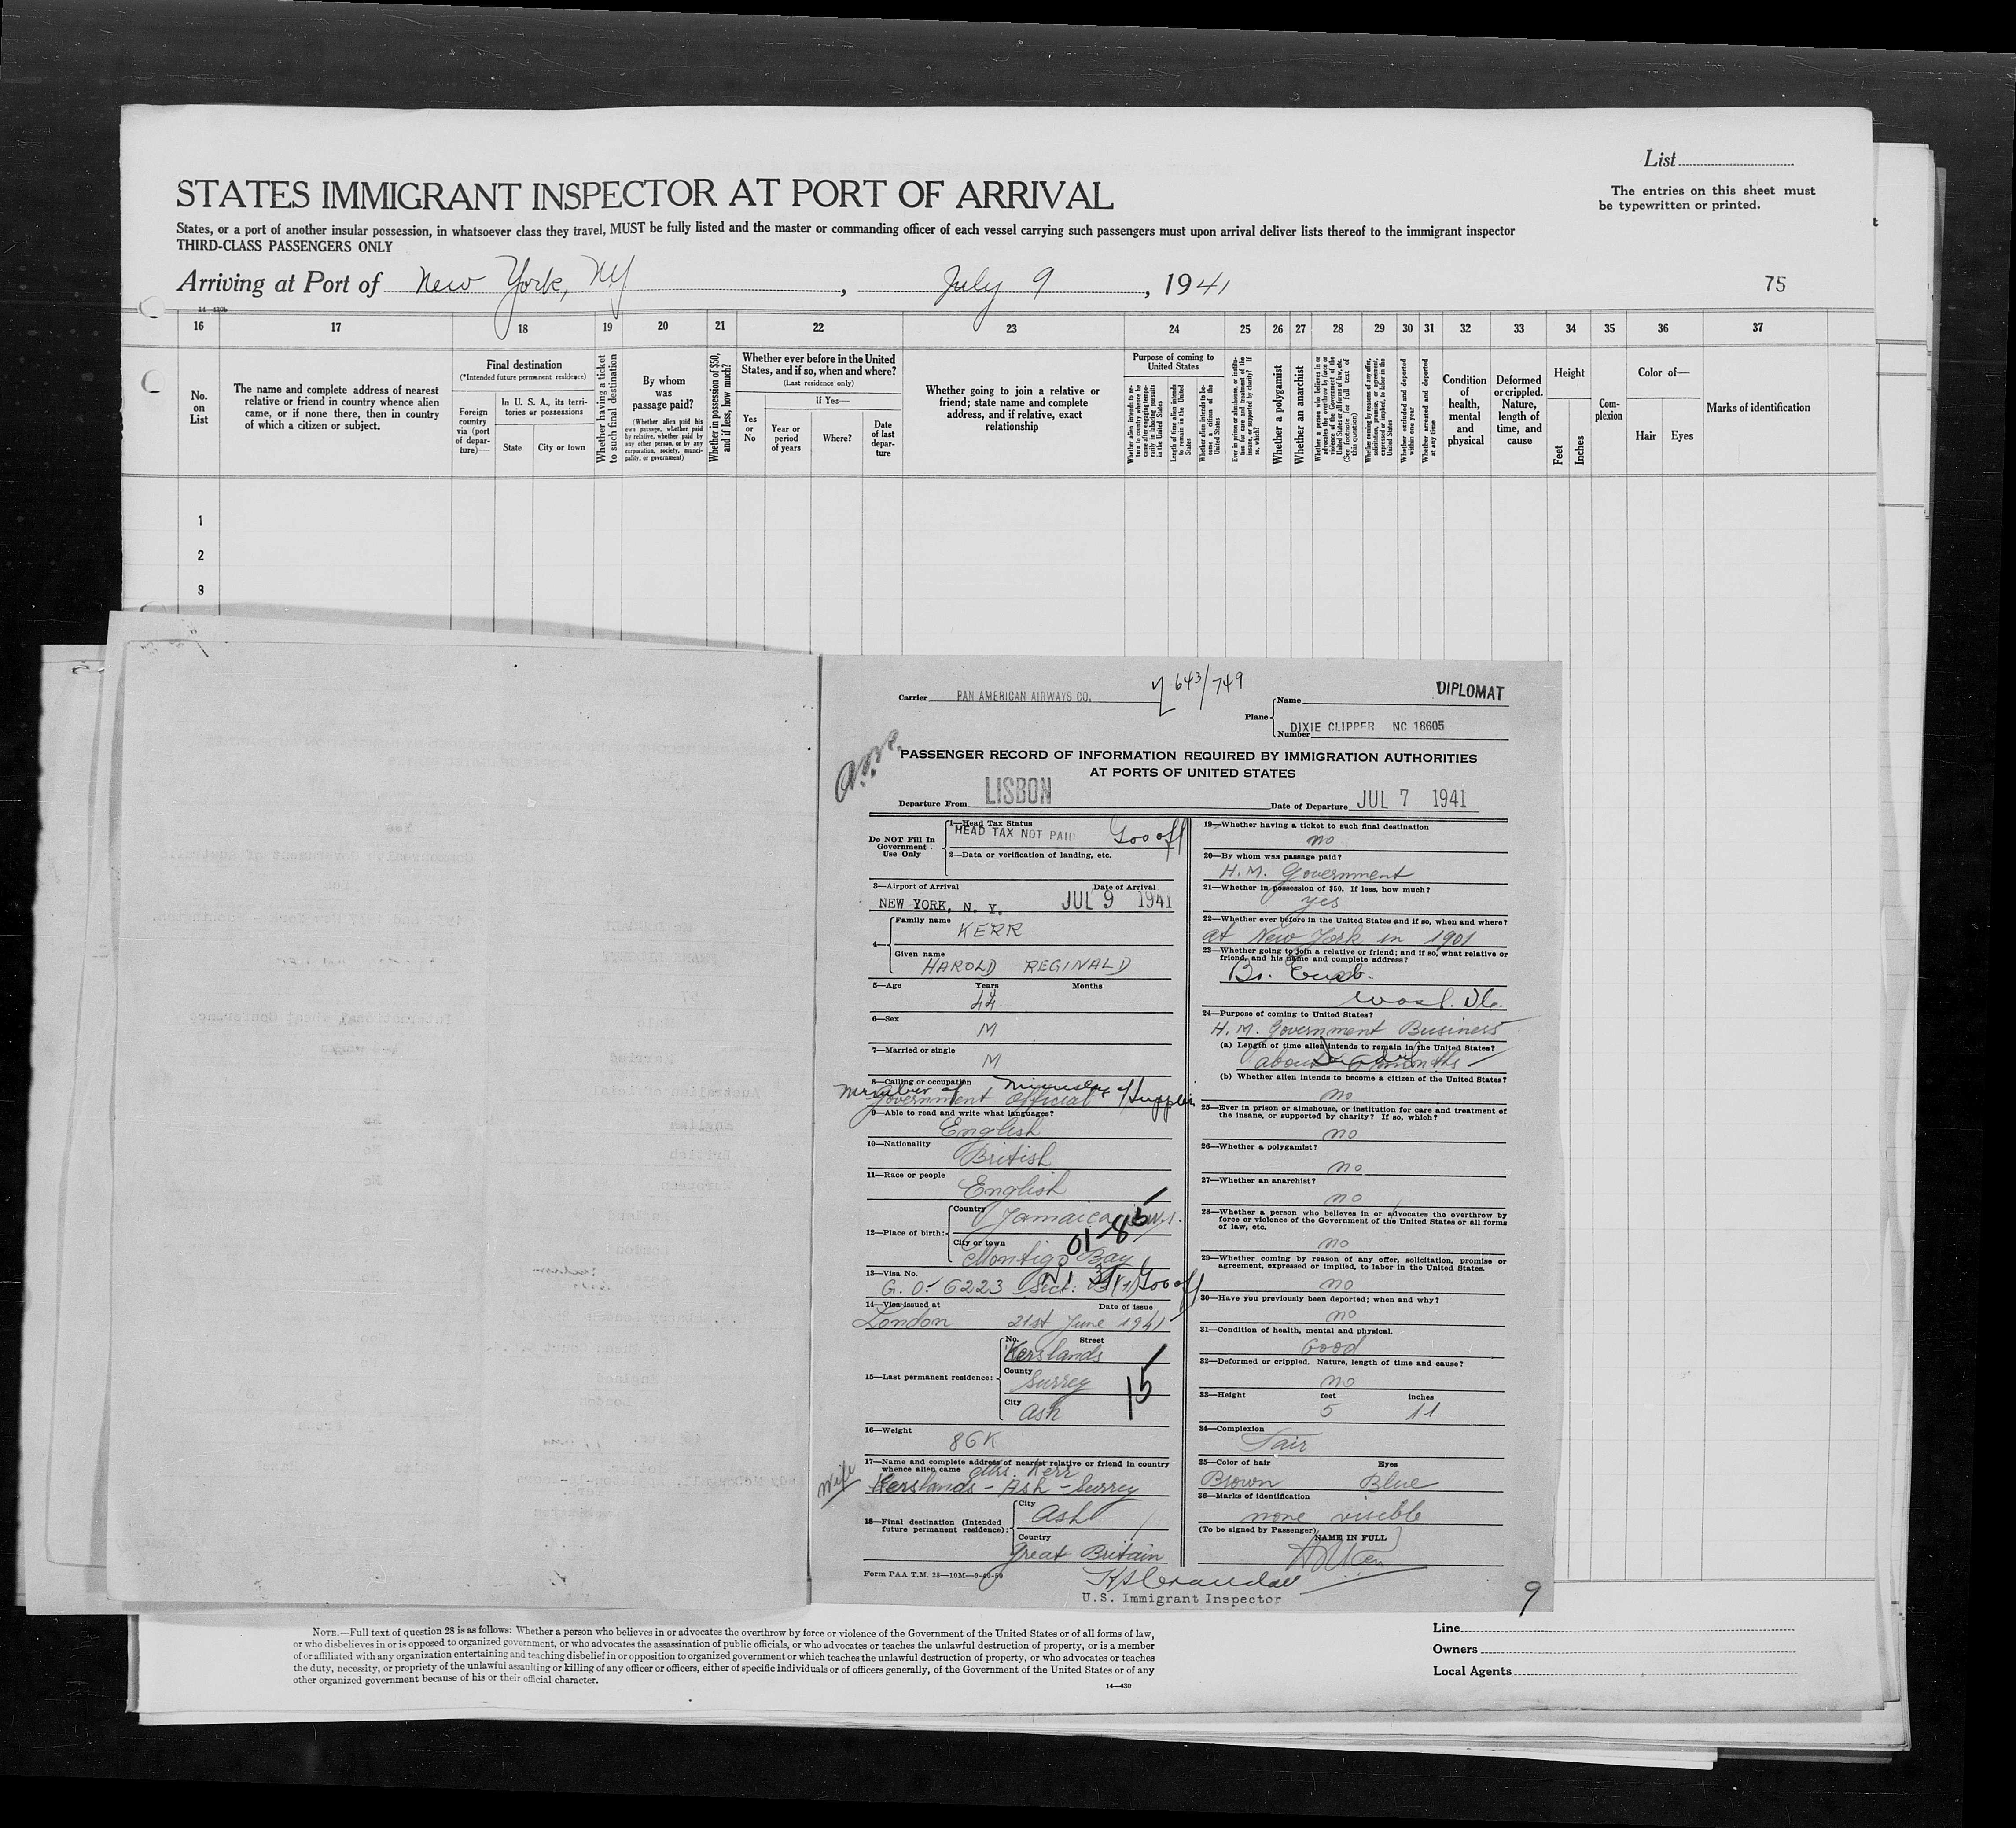 List
The entries on this sheet must
be typewritten or printed.
STATES IMMIGRANT INSPECTOR AT PORT OF ARRIVAL
States, or a port of another insular possession, in whatsoever class they travel, MUST be fully listed and the master or commanding officer of each vessel carrying such passengers must upon arrival deliver lists thereof to the immigrant inspector
THIRD-CLASS PASSENGERS ONLY
Arriving at Port of New York, NY, July 9, 1941
75
16 17 18 19 20 21 22 23 24 25 26 27 28 29 30 31 32 33 34 35 36 37
No. on List
The name and complete address of nearest relative or friend in country whence alien came, or if none there, then in country of which a citizen or subject.
Final destination
(*Intended future permanent residence)
Foreign country via (port of departure)—
In U. S. A., its territories or possessions
State
City or town
Whether having a ticket to such final destination
By whom was passage paid?
(Whether alien paid his own passage, whether paid by relative, whether paid by any other person, or by any corporation, society, municipality, or government)
Whether in possession of $50, and if less, how much?
Whether ever before in the United States, and if so, when and where?
(Last residence only)
Yes or No
If Yes—
Year or period of years
Where?
Date of last departure
Whether going to join a relative or friend; state name and complete address, and if relative, exact relationship
Purpose of coming to United States
Whether alien intends to return to country whence he came after engaging temporarily in laboring pursuits in the United States
Length of time alien intends to remain in the United States
Whether alien intends to become a citizen of the United States
Ever in prison or almshouse, or institution for care and treatment of the insane, or supported by charity? If so, which?
Whether a polygamist
Whether an anarchist
Whether a person who believes in or advocates the overthrow by force or violence of the Government of the United States or all forms of law, etc. (See footnote for full text of this question)
Whether coming by reason of any offer, solicitation, promise, or agreement, expressed or implied, to labor in the United States
Whether excluded and deported within one year
Whether arrested and deported at any time
Condition of health, mental and physical
Deformed or crippled. Nature, length of time, and cause
Height
Feet
Inches
Complexion
Color of—
Hair
Eyes
Marks of identification
1
2
3
Carrier PAN AMERICAN AIRWAYS CO.
643/749
DIPLOMAT
Plane
Name
Number DIXIE CLIPPER NC 18605
PASSENGER RECORD OF INFORMATION REQUIRED BY IMMIGRATION AUTHORITIES
AT PORTS OF UNITED STATES
Departure From LISBON
Date of Departure JUL 7 1941
Do NOT Fill In Government Use Only
1—Head Tax Status
HEAD TAX NOT PAID Goo off
2—Data or verification of landing, etc.
3—Airport of Arrival Date of Arrival
NEW YORK, N. Y. JUL 9 1941
4— Family name
KERR
Given name
HAROLD REGINALD
5—Age Years Months
44
6—Sex
M
7—Married or single
M
8—Calling or occupation
member of Ministry of Supplies
Government Official
9—Able to read and write what languages?
English
10—Nationality
British
11—Race or people
English
12—Place of birth: Country
Jamaica B.W.I.
City or town
Montigo Bay
13—Visa No.
G.O. 6223 Sect: 3(1) Goo off
14—Visa issued at Date of issue
London 21st June 1941
15—Last permanent residence: No. Street
Kerslands
County
Surrey
City
Ash
15
16—Weight
86K
17—Name and complete address of nearest relative or friend in country whence alien came Mrs. Kerr
Wife
Kerslands - Ash - Surrey
18—Final destination (Intended future permanent residence): City
Ash
Country
Great Britain
Form PAA T.M. 28—10M—9-
19—Whether having a ticket to such final destination
no
20—By whom was passage paid?
H.M. Government
21—Whether in possession of $50. If less, how much?
yes
22—Whether ever before in the United States and if so, when and where?
at New York in 1901
23—Whether going to join a relative or friend; and if so, what relative or friend, and his name and complete address?
Br. Emb.
Wash. DC.
24—Purpose of coming to United States?
H.M. Government Business
(a) Length of time alien intends to remain in the United States?
about 6 months
(b) Whether alien intends to become a citizen of the United States?
no
25—Ever in prison or almshouse, or institution for care and treatment of the insane, or supported by charity? If so, which?
no
26—Whether a polygamist?
no
27—Whether an anarchist?
no
28—Whether a person who believes in or advocates the overthrow by force or violence of the Government of the United States or all forms of law, etc.
no
29—Whether coming by reason of any offer, solicitation, promise or agreement, expressed or implied, to labor in the United States.
no
30—Have you previously been deported; when and why?
no
31—Condition of health, mental and physical.
Good
32—Deformed or crippled. Nature, length of time and cause?
no
33—Height feet inches
5 11
34—Complexion
Fair
35—Color of hair Eyes
Brown Blue
36—Marks of identification
none visible
(To be signed by Passenger) NAME IN FULL
U.S. Immigrant Inspector
9
NOTE.—Full text of question 28 is as follows: Whether a person who believes in or advocates the overthrow by force or violence of the Government of the United States or of all forms of law,
or who disbelieves in or is opposed to organized government, or who advocates the assassination of public officials, or who advocates or teaches the unlawful destruction of property, or is a member
of or affiliated with any organization entertaining and teaching disbelief in or opposition to organized government or which teaches the unlawful destruction of property, or who advocates or teaches
the duty, necessity, or propriety of the unlawful assaulting or killing of any officer or officers, either of specific individuals or of officers generally, of the Government of the United States or of any
other organized government because of his or their official character.
14—430
Line
Owners
Local Agents